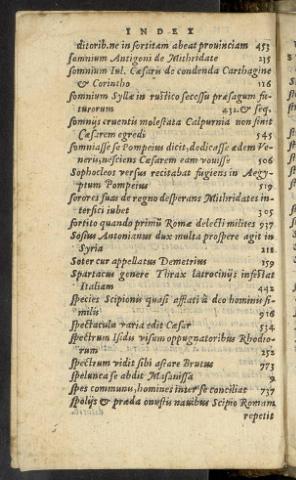 INDEX
ditorib. ne in sortitam abeat prouinciam 453
somnium Antigoni de Mithridate 235
somnium Iul. Cæsaris de condenda Carthagine
& Corintho 116
somnium Syllæ in rustico secessu præsagum fu-
turorum 432. & seq.
somnijs cruentis molestata Calpurnia non sinit
Cæsarem egredi 545
somniasse se Pompeius dicit, dedicasse ædem Ve-
neris, nesciens Cæsarem eam vouisse 506
Sophocleos versus recitabat fugiens in Aegy-
ptum Pompeius 519
sorores suas de regno desperans Mithridates in-
terfici iubet 305
sortito quando primū Romæ delecti milites 937
Sosius Antonianus dux multa prospere agit in
Syria 218
Soter cur appellatus Demetrius 159
Spartacus genere Thrax latrocinijs infestat
Italiam 442
species Scipionis quasi afflati à deo hominis si-
milis 916
spectacula varia edit Cæsar 534
spectrum Isidis visum oppugnatoribus Rhodio-
rum 252
spectrum vidit sibi astare Brutus 973
spelunca se abdit Masanissa 9
spes communis, homines inter se conciliat 737
spolijs & præda onustis nauibus Scipio Romam
repetit